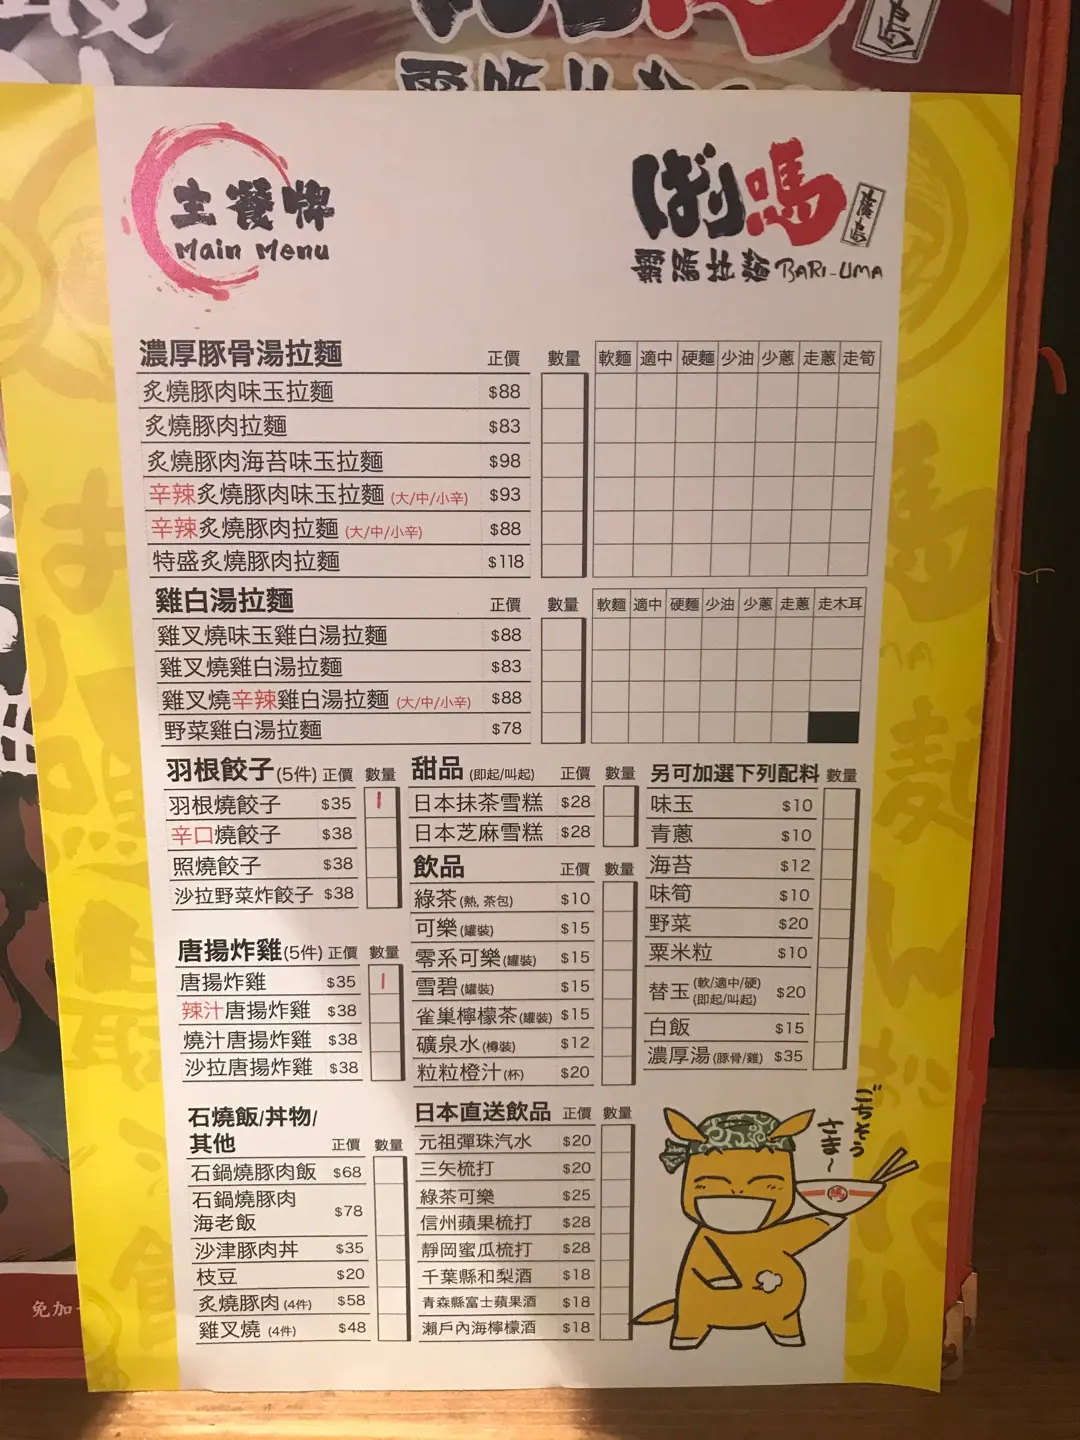 主餐牌
Main Menu
ばり嗎
廣島
霸嗎拉麵 BARI-UMA
濃厚豚骨湯拉麵 正價 數量 軟麵 適中 硬麵 少油 少蔥 走蔥 走筍
炙燒豚肉味玉拉麵 $88
炙燒豚肉拉麵 $83
炙燒豚肉海苔味玉拉麵 $98
辛辣炙燒豚肉味玉拉麵 (大/中/小辛) $93
辛辣炙燒豚肉拉麵 (大/中/小辛) $88
特盛炙燒豚肉拉麵 $118
雞白湯拉麵 正價 數量 軟麵 適中 硬麵 少油 少蔥 走蔥 走木耳
雞叉燒味玉雞白湯拉麵 $88
雞叉燒雞白湯拉麵 $83
雞叉燒辛辣雞白湯拉麵 (大/中/小辛) $88
野菜雞白湯拉麵 $78
羽根餃子(5件) 正價 數量
羽根燒餃子 $35 1
辛口燒餃子 $38
照燒餃子 $38
沙拉野菜炸餃子 $38
唐揚炸雞(5件) 正價 數量
唐揚炸雞 $35 1
辣汁唐揚炸雞 $38
燒汁唐揚炸雞 $38
沙拉唐揚炸雞 $38
石燒飯/丼物/
其他 正價 數量
石鍋燒豚肉飯 $68
石鍋燒豚肉
海老飯 $78
沙津豚肉丼 $35
枝豆 $20
炙燒豚肉 (4件) $58
雞叉燒 (4件) $48
甜品 (即起/叫起) 正價 數量
日本抹茶雪糕 $28
日本芝麻雪糕 $28
飲品 正價 數量
綠茶 (熱, 茶包) $10
可樂 (罐裝) $15
零系可樂 (罐裝) $15
雪碧 (罐裝) $15
雀巢檸檬茶 (罐裝) $15
礦泉水 (樽裝) $12
粒粒橙汁 (杯) $20
日本直送飲品 正價 數量
元祖彈珠汽水 $20
三矢梳打 $20
綠茶可樂 $25
信州蘋果梳打 $28
靜岡蜜瓜梳打 $28
千葉縣和梨酒 $18
青森縣富士蘋果酒 $18
瀨戶內海檸檬酒 $18
另可加選下列配料 數量
味玉 $10
青蔥 $10
海苔 $12
味筍 $10
野菜 $20
粟米粒 $10
替玉 (軟/適中/硬) (即起/叫起) $20
白飯 $15
濃厚湯 (豚骨/雞) $35
ごちそう
さま～
免加